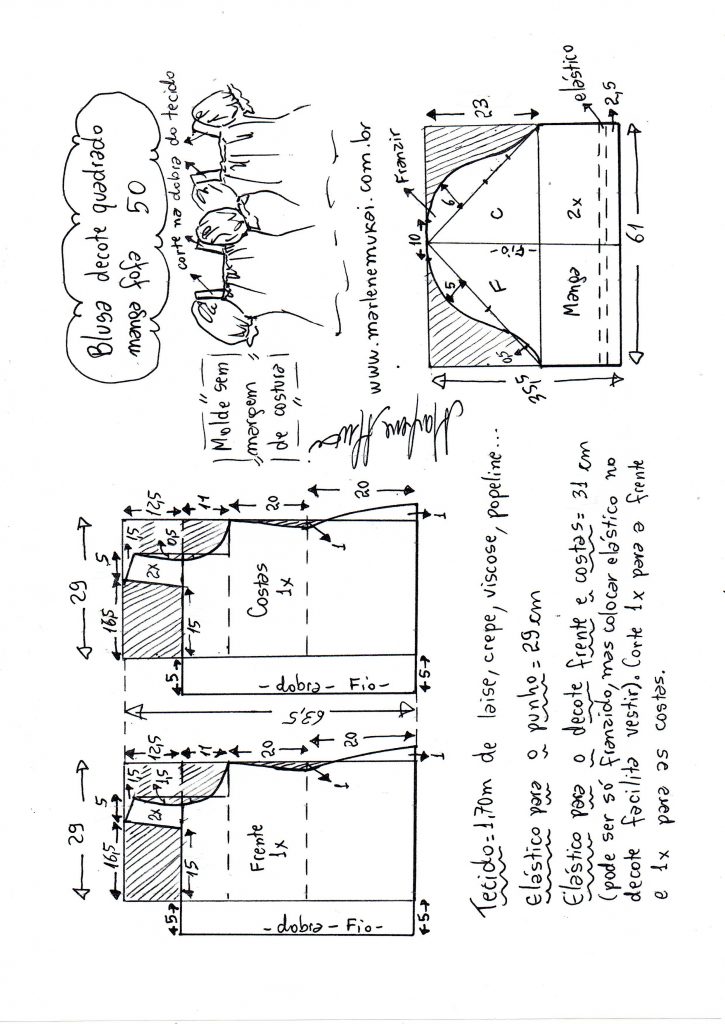 Blusa decote quadrado
manga fofa 50
corte na dobra do tecido
Molde sem
margem
de costura
www.marlenemukai.com.br
29
16,5
5
1,5
1,5
12,5
2x
11
15
5
Frente
1x
20
1
20
- dobra - Fio -
5
1
63,5
29
16,5
5
1,5
0,5
12,5
2x
11
15
5
Costas
1x
20
1
20
- dobra - Fio -
5
1
Franzir
10
23
6
5
0,5
F
Fio
C
35,5
Manga
2x
elástico
2,5
61
Tecido=1,70m de laise, crepe, viscose, popeline...
Elástico para o punho=29cm
Elástico para o decote frente e costas= 31 cm
(pode ser só franzido, mas colocar elástico no
decote facilita vestir). Corte 1x para a frente
e 1x para as costas.